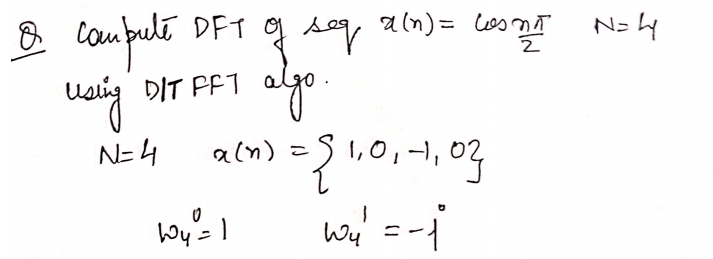 Q Compute DFT of seq x(n) = cos nπ/2 N=4
using DIT FFT algo.
N=4 x(n) = {1, 0, -1, 0}
W₄⁰ = 1 W₄¹ = -j